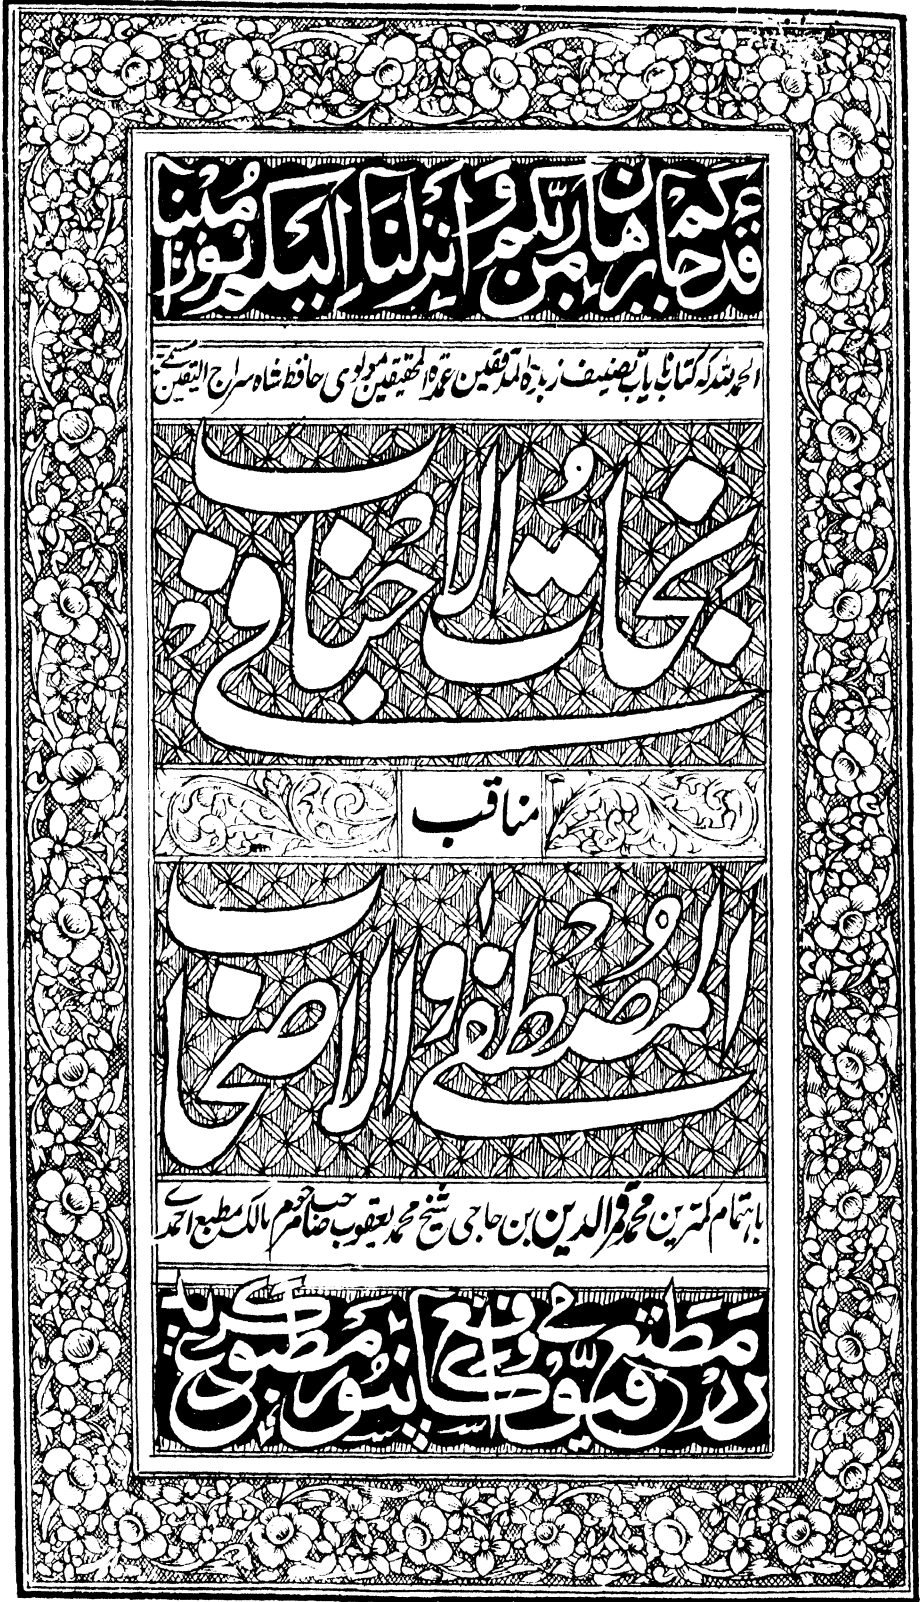 قد جاءكم برهان من ربكم و انزلنا اليكم نورا مبينا
الحمد لله که کتاب نایاب تصنیف زبدة المدققین عمدة المحققین مولوی حافظ شاه سراج الیقین
نجات الاحباب فی
مناقب
المصطفٰی و الاصحاب
باهتمام کمترین محمد قمر الدین بن حاجی شیخ محمد یعقوب صاحب مرحوم مالک مطبع احمدی
در مطبع قیومی واقع کانپور مطبوع گردید